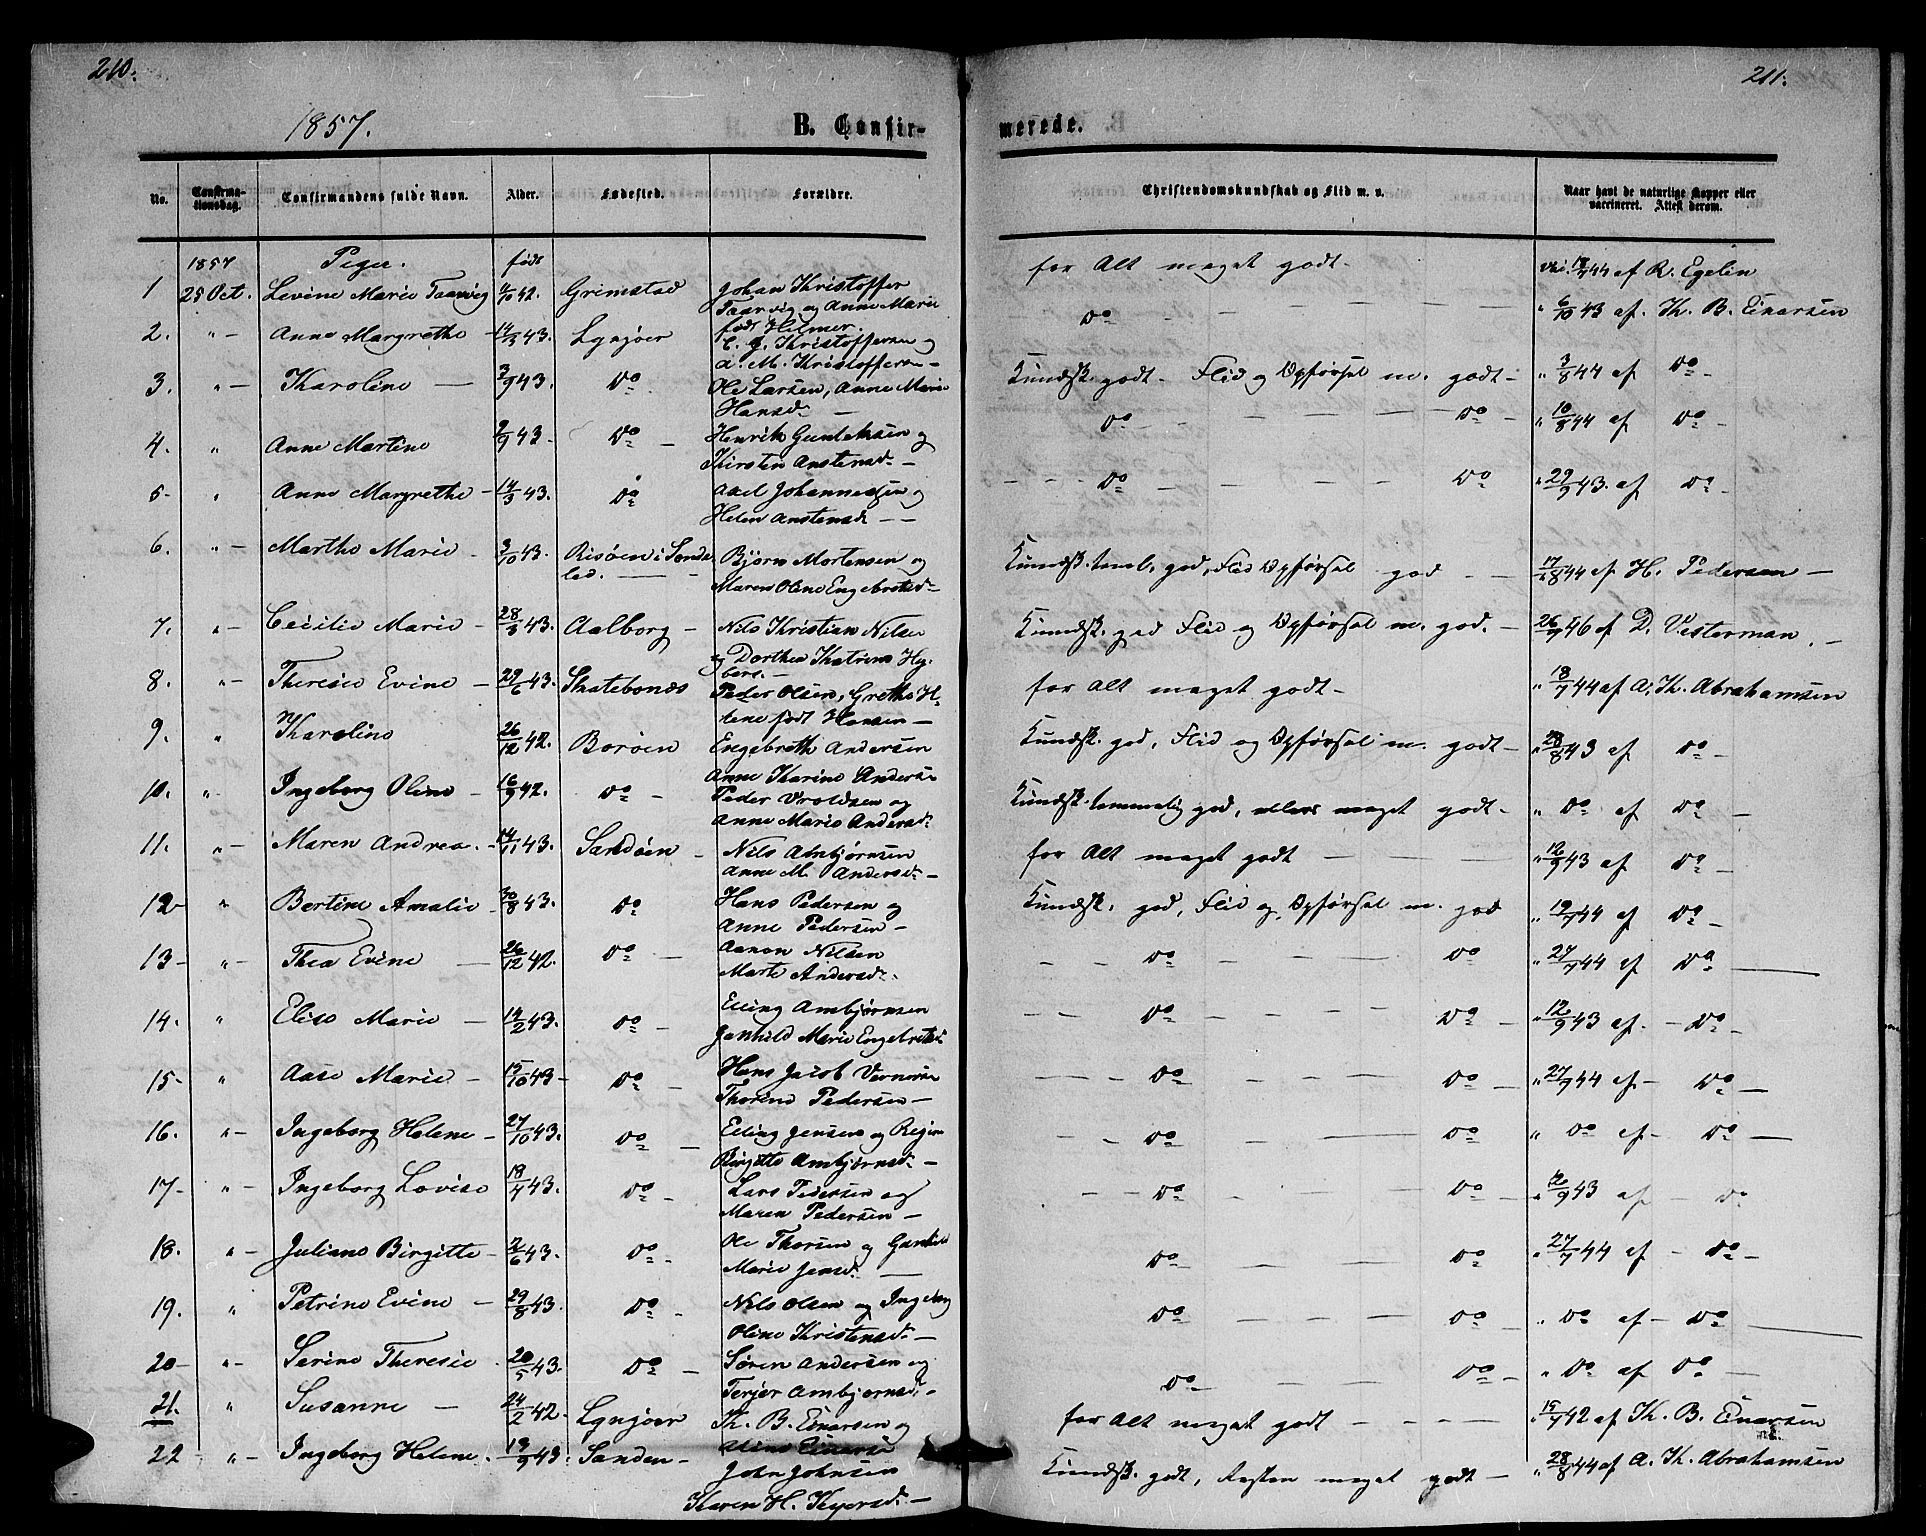 210.
211.
1857.
B. Confir-
merede.
No.
Confirma-
tionsdag.
Confirmandens fulde Navn.
Alder.
Fødested.
Forældre.
Christendomskundskab og Flid m. v.
Naar havt de naturlige Kopper eller
vaccineret. Attest derom.
1857 Piger. født
1 25 Oct. Levine Marie Taarvig 4/10 42. Grimstad Johan Kristoffer
Taarvig og Anne Marie
født Helmer.
for Alt meget godt - vac. 18/7 44 af R. Egelin
2. " - Anne Margrethe - 14/3 43. Lyngøer C. J. Kristoffersen og
A. M. Kristoffersen -
Do - " 6/10 43 af Th. B. Einarsen
3. " - Karoline - 3/9 43. Do Ole Larsen, Anne Marie
Hansd. -
Kundsk. godt - Flid og Opførsel m. godt - " 3/8 44 af Do -
4. " Anne Martine 2/9 43. Do - Henrik Guntelsen og
Kirsten Anstensd. -
Do - Do " 10/8 44 af Do -
5 - " Anne Margrethe - 14/3 43. Do Axel Johannessen og
Helen Anstensd - -
Do - Do " 29/9 43. af Do -
6. " - Marthe Marie - 3/10 43. Risøen i Sønde
led. - Bjørn Mortensen og
Maren Oline Engebretsd -
Kundsk. teml. god, Flid Opførsel god - - 17/8 44 af H. Pedersen -
7. " - Cecilie Marie - 28/3 43. Aalborg - Nils Kristian Nilsen
og Dorthea Katrine Hy-
berg. -
Kundsk. god Flid og Opførsel m. god. - 26/7 46 af D. Vesterman . -
8. " - Theresie Evine - 29/6 43. Skatebonæs Peder Olsen, Grethe He-
lene født Hansen -
for Alt meget godt - " 18/7 44 af A. Th. Abrahamsen
9. " Karoline 26/12 42. Borøen Engebreth Andersen
Anne Karine Anders
Kundsk. god, Flid og Opførsel m. godt - " 28/8 43 af Do -
10. " - Ingeborg Oline - 16/9 42. Do - Peder Vroldsen og
Anne Marie Andersd.
Kundsk. temmelig god, ellers meget godt - " Do af Do -
11. " - Maren Andrea. - 14/11 43. Sandøen - Nils Ambjørnsen
Anne M. Andersd. -
for Alt meget godt - " 12/9 43 af Do -
12 - " Bertine Amalie - 30/8 43. Do Hans Pedersen og
Anne Pedersen -
Kundsk. god, Flid og Opførsel m. god " 19/7 44 af Do -
13 - " - Thea Evine - 26/12 42. Do - Aanon Nilsen
Marte Andersd.
Do - Do " 27/7 44 af Do -
14. " Elise Marie - 14/2 43. Do - Elling Ambjørnsen
Gunhild Marie Engebretsd.
Do - Do - " 12/9 43 af. - Do -
15 - " Aase Marie - 15/10 43 - Do - Hans Jacob Vernersen
Thorine Pedersen -
Do - Do - " 27/9 44 af - Do -
16. " - Ingeborg Helene - 27/10 43. Do - Elling Jensen og Regine
Birgitte Ambjørnsd. -
Do - Do " Do af - Do -
17 - " - Ingeborg Lovise 18/4 43. Do - Lars Pedersen og
Maren Pedersen -
Do - Do - " 12/9 43 af - Do
18. " - Juliane Birgitte - 2/6 43. Do - Ole Thorsen og Gunhild
Marie Jensd. -
Do - Do " 27/7 44 af - Do -
19. " Petrine Evine - 29/8 43. Do - Nils Olsen og Ingeborg
Oline Kristensd. -
Do - Do " Do af - Do -
20 - " - Serine Theresie - 20/5 43. Do - Søren Andersen og
Terjer Ambjørnsd. -
Do - Do - " Do af Do -
21. " Susanne - 24/2 42. Lyngøer Th. B. Einarsen og
Einarsen
for Alt meget godt - " 15/7 42 af Th. B. Einarsen
22 - " - Ingeborg Helene. - 19/9 43. Sanden - John Johnsen
Karen H. -
Kundsk. godt, Resten meget godt - " 28/8 44 af A. Th. Abrahamsen